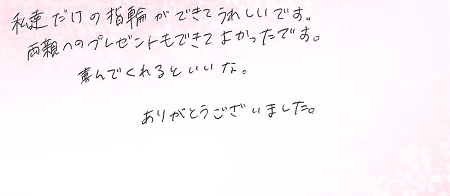 私達だけの指輪ができてうれしいです。
両親へのプレゼントもできてよかったです。
喜んでくれるといいな。
ありがとうございました。